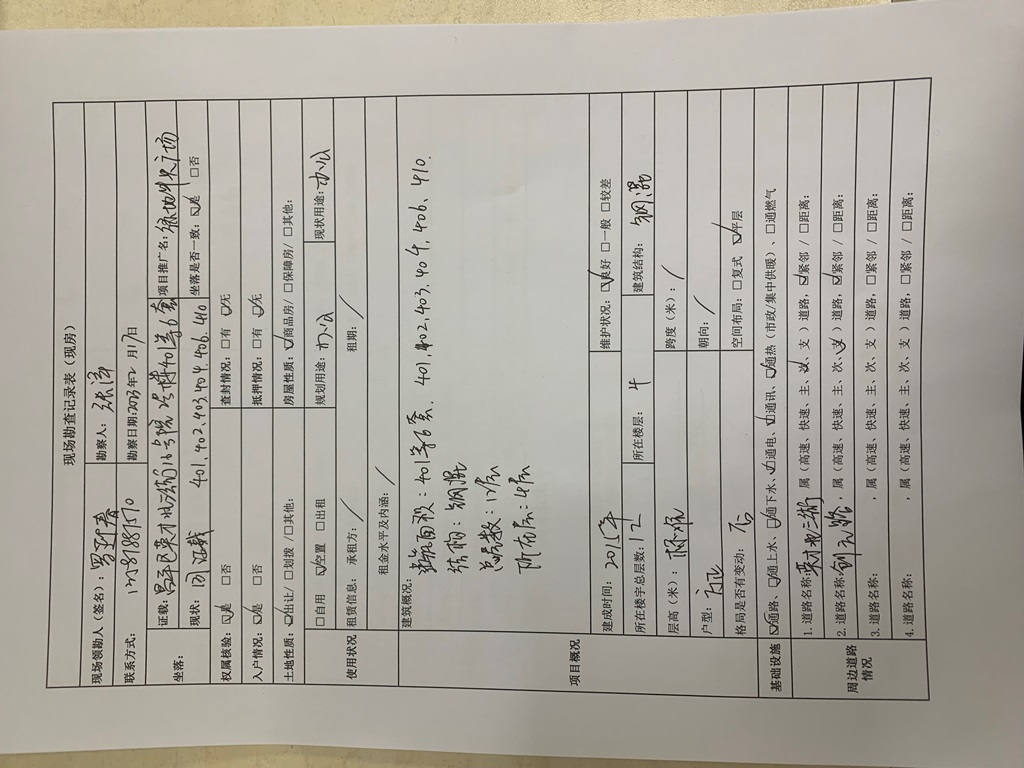 现场勘查记录表（现房）
现场领勘人（签名）： 勘察人：张萍
联系方式： 勘察日期:2023年2月17日
坐落： 证载:昌平区 401等6套 项目推广名: 广场
现状:同证载 401、402、403、404、406、410 坐落是否一致: ☑是 □否
权属核验: ☑是 □否 查封情况: □有 ☑无
入户情况: ☑是 □否 抵押情况: □有 ☑无
土地性质: ☑出让/ □划拨 /□其他: 房屋性质: ☑商品房/ □保障房/ □其他:
使用状况 □自用 ☑空置 □出租 规划用途: 办公 现状用途: 办公
租赁信息: 承租方: / 租期: /
租金水平及内涵: /
项目概况
建筑概况:
建筑面积: 401等6套. 401, 402, 403, 404, 406, 410.
结构: 钢混
总层数: 12层
所在层: 4层
建成时间: 2015年 维护状况: ☑良好 □一般 □较差
所在楼宇总层数: 12 所在楼层: 4 建筑结构: 钢混
层高（米）: 跨度（米）: /
户型: 朝向: /
格局是否有变动: 否 空间布局: □复式 ☑平层
基础设施 ☑通路、☑通上水、☑通下水、☑通电、☑通讯、☑通热（市政/集中供暖）、□通燃气
周边道路情况
1. 道路名称: , 属（高速、快速、主、次、支）道路, ☑紧邻 / □距离:
2. 道路名称: , 属（高速、快速、主、次、支）道路, ☑紧邻 / □距离:
3. 道路名称: , 属（高速、快速、主、次、支）道路, □紧邻 / □距离:
4. 道路名称: , 属（高速、快速、主、次、支）道路, □紧邻 / □距离: